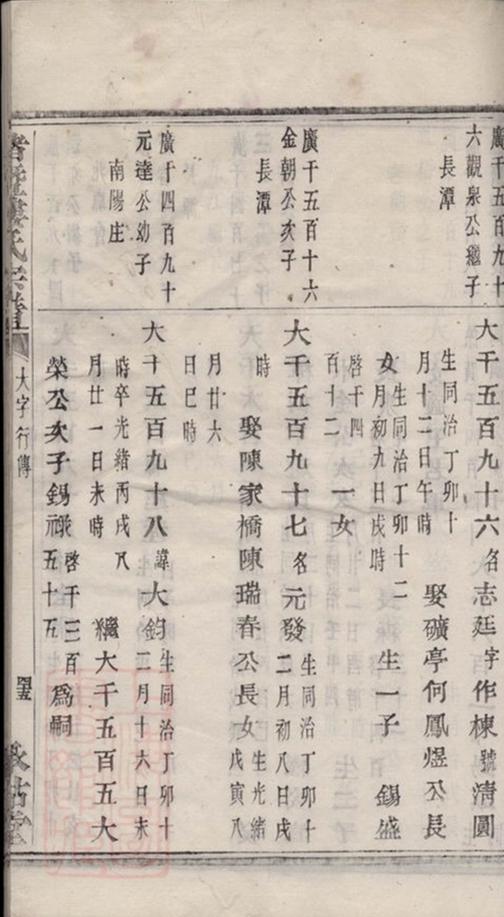 廣千五百九十
六觀泉公繼子
長潭
大千五百九十六名志廷字作棟號清圓
生同治丁卯十
月十二日午時
娶礦亭何鳳煜公長
女生同治丁卯十二
月初九日戌時
生一子
錫盛
啓千四
百十二
一女
廣千五百十六
金朝公次子
長潭
大千五百九十七名元發生同治丁卯十
二月初八日戌
時
娶陳家橋陳瑞春公長女生光緒
戊寅八
月廿六
日巳時
廣千四百九十
元達公幼子
南陽庄
大千五百九十八諱大鈞生同治丁卯十
二月十六日未
時卒光緒丙戌八
月廿一日未時
繼大千五百五大
榮公次子錫祿啓千三百
五十五爲嗣
氏宗譜
大字行傳